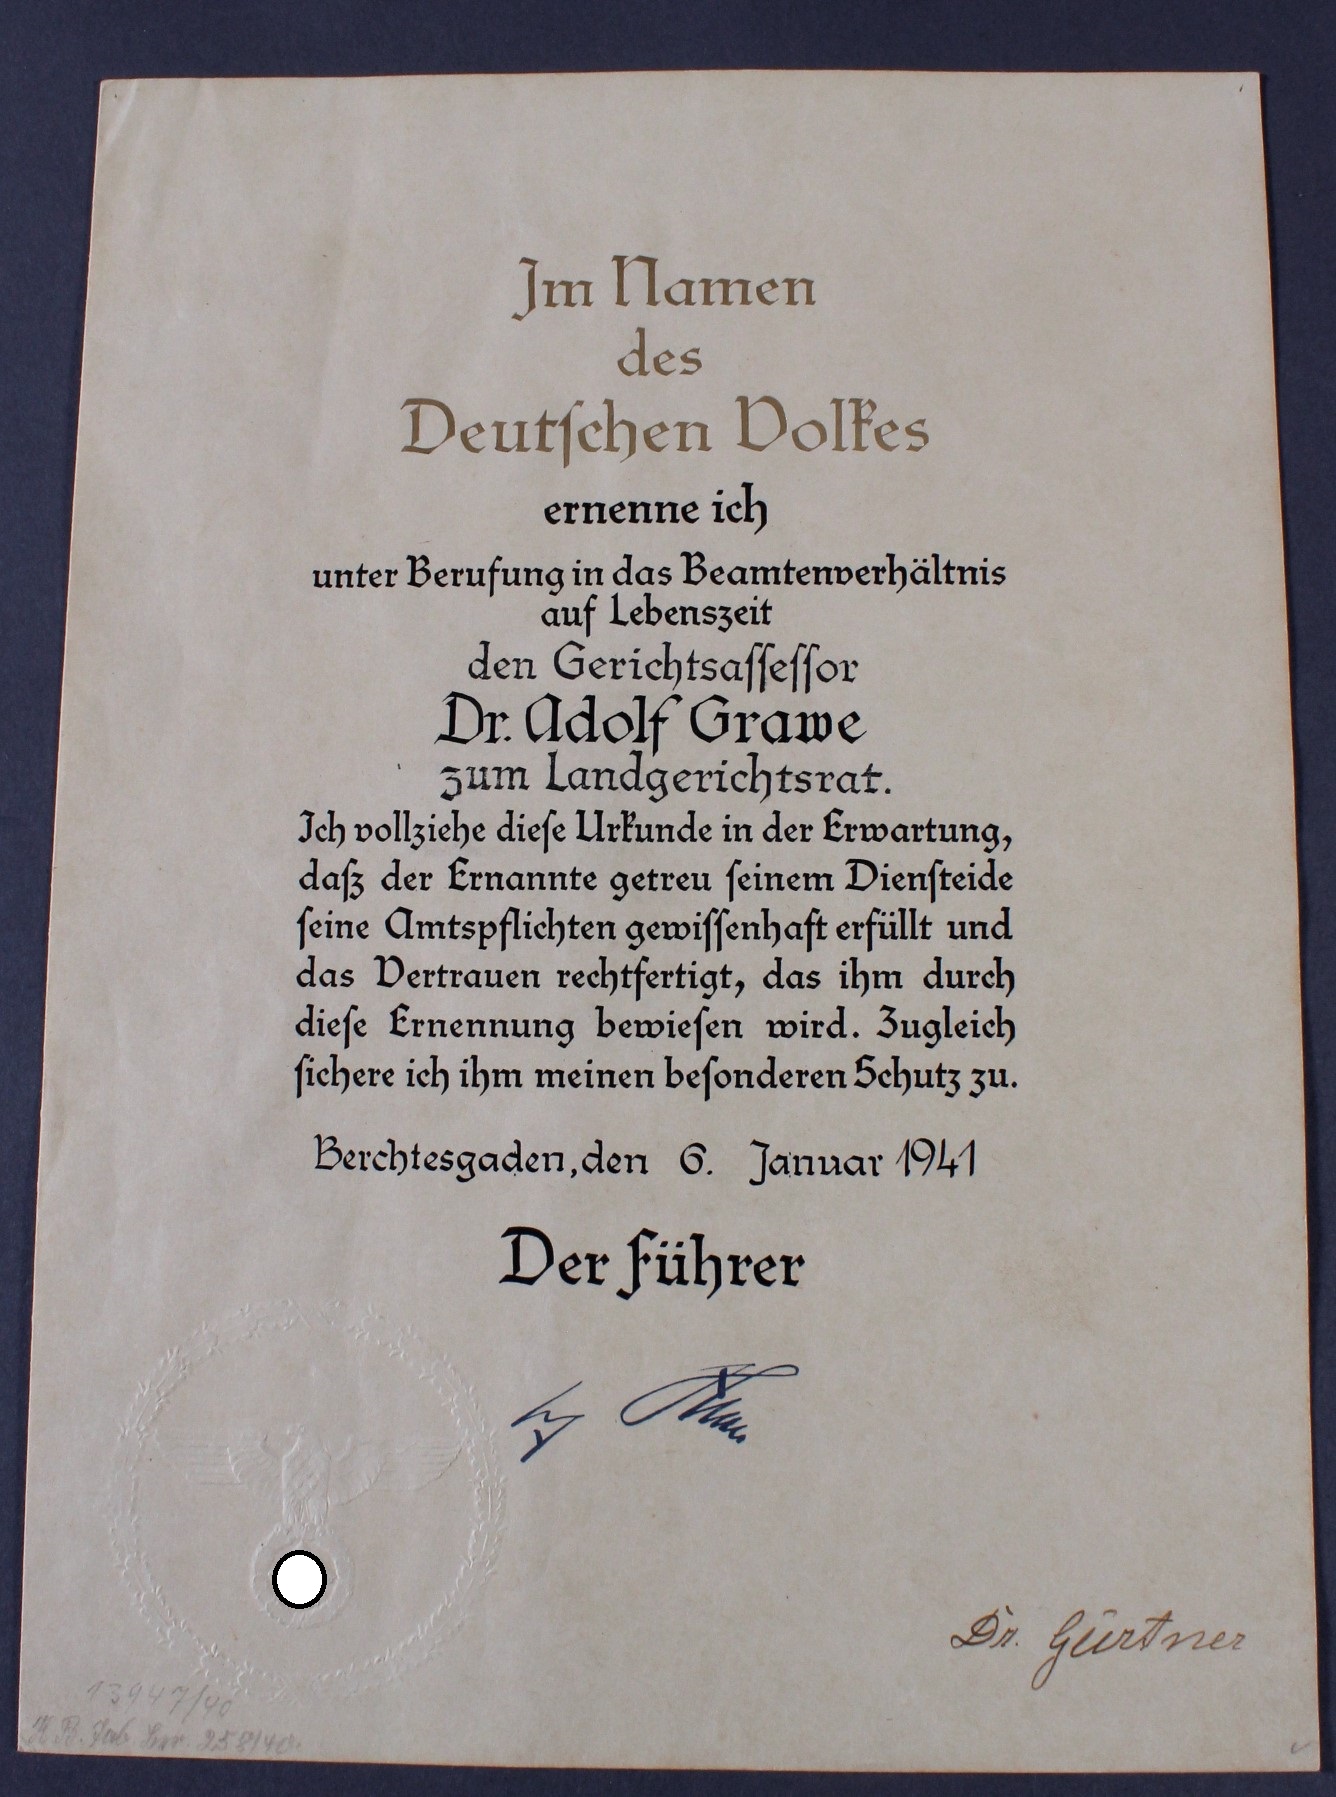 Im Namen
des
Deutſchen Volkes
ernenne ich
unter Berufung in das Beamtenverhältnis
auf Lebenszeit
den Gerichtsaſſeſſor
Dr. Adolf Grawe
zum Landgerichtsrat.
Ich vollziehe dieſe Urkunde in der Erwartung,
daß der Ernannte getreu ſeinem Dienſteide
ſeine Amtspflichten gewiſſenhaft erfüllt und
das Vertrauen rechtfertigt, das ihm durch
dieſe Ernennung bewieſen wird. Zugleich
ſichere ich ihm meinen beſonderen Schutz zu.
Berchtesgaden, den 6. Januar 1941
Der Führer
Dr. Gürtner
13947/40